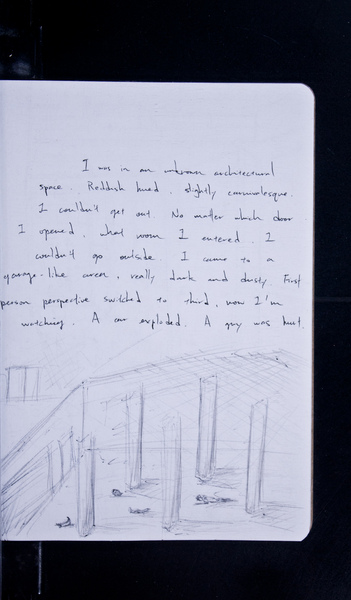 I was in an unknown architectural
space. Reddish hued, slightly carnivalesque.
I couldn't get out. No matter which door
I opened, what room I entered, I
couldn't go outside. I came to a
garage-like area, really dark and dusty. First
person perspective switched to third, now I'm
watching. A car exploded. A guy was hurt.